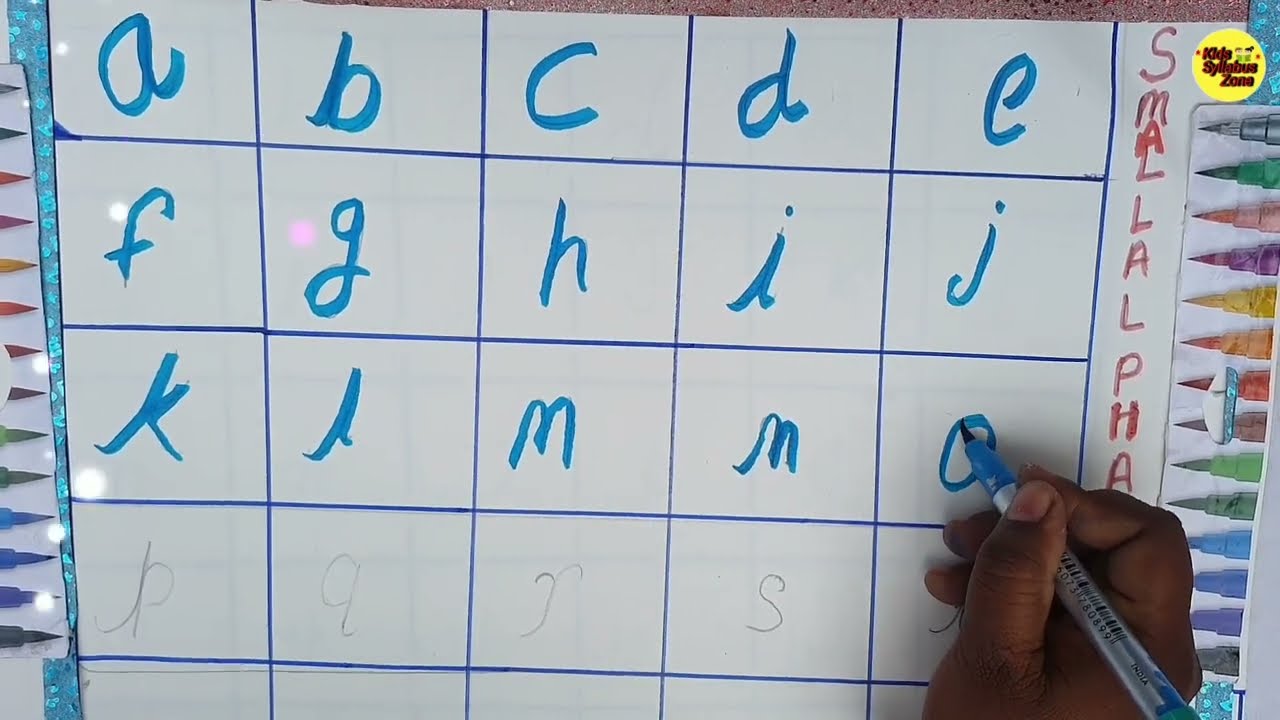 a b c d e
f g h i j
k l m n o
p q r s
SMALL ALPHA
Kids
Syllabus
Zona
9073780899
INDIA